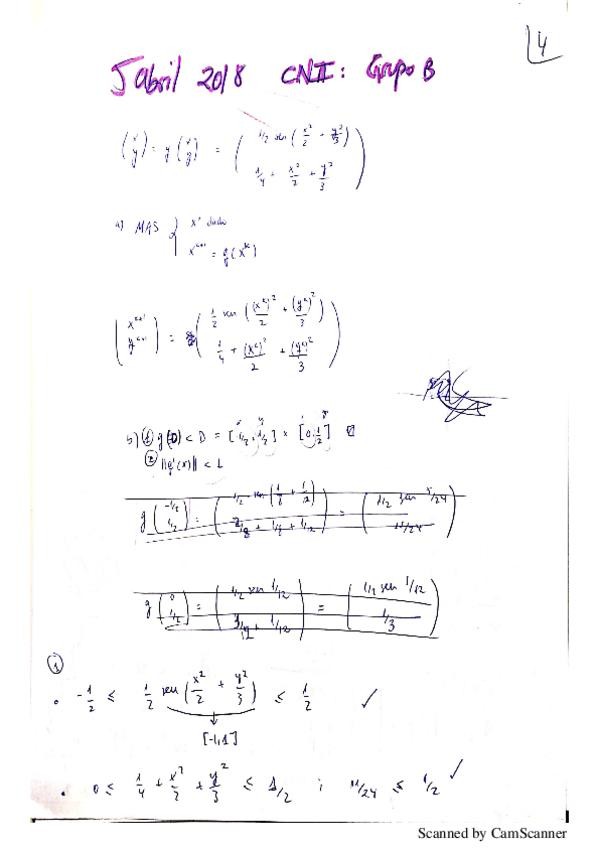 4
5 abril 2018 CNII: Grupo B
(x y) = g (x y) = ( 1/2 sen (x²/2 + y²/3) ; 1/4 + x²/2 + y²/3 )
a) MAS { x⁰ dado
xᵏ⁺¹ = g(xᵏ)
(xᵏ⁺¹ yᵏ⁺¹) = ( 1/2 sen ((xᵏ)²/2 + (yᵏ)²/3) ; 1/4 + (xᵏ)²/2 + (yᵏ)²/3 )
b) ① g(D) < D = [-1/2, 1/2] × [0, 1/2]
② ||g'(x)|| < 1
g (-1/2 1/2) = ( 1/2 sen (1/8 + 1/12) ; 1/8 + 1/12 ) = ( 1/2 sen 5/24 ; 11/24 )
g (0 1/2) = ( 1/2 sen 1/12 ; + 1/12 ) = ( 1/2 sen 1/12 ; 1/3 )
①
• -1/2 ≤ 1/2 sen (x²/2 + y²/3) ≤ 1/2 ✓
[-1,1]
• 0 ≤ 1/4 + x²/2 + y²/3 ≤ 1/2 ; 11/24 ≤ 1/2 ✓
Scanned by CamScanner